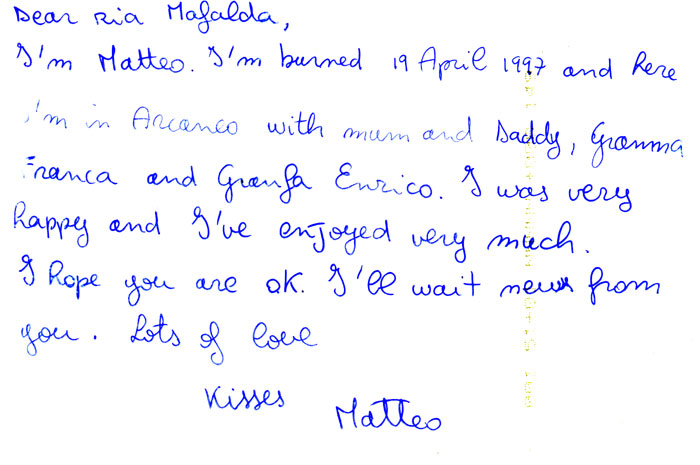 Dear Ria Mafalda,
I'm Matteo. I'm burned 19 April 1997 and here
I'm in Arcanco with mum and Daddy, Granma
Franca and Granfa Enrico. I was very
happy and I've enjoyed very much.
I hope you are ok. I'll wait news from
you. Lots of love
Kisses
Matteo